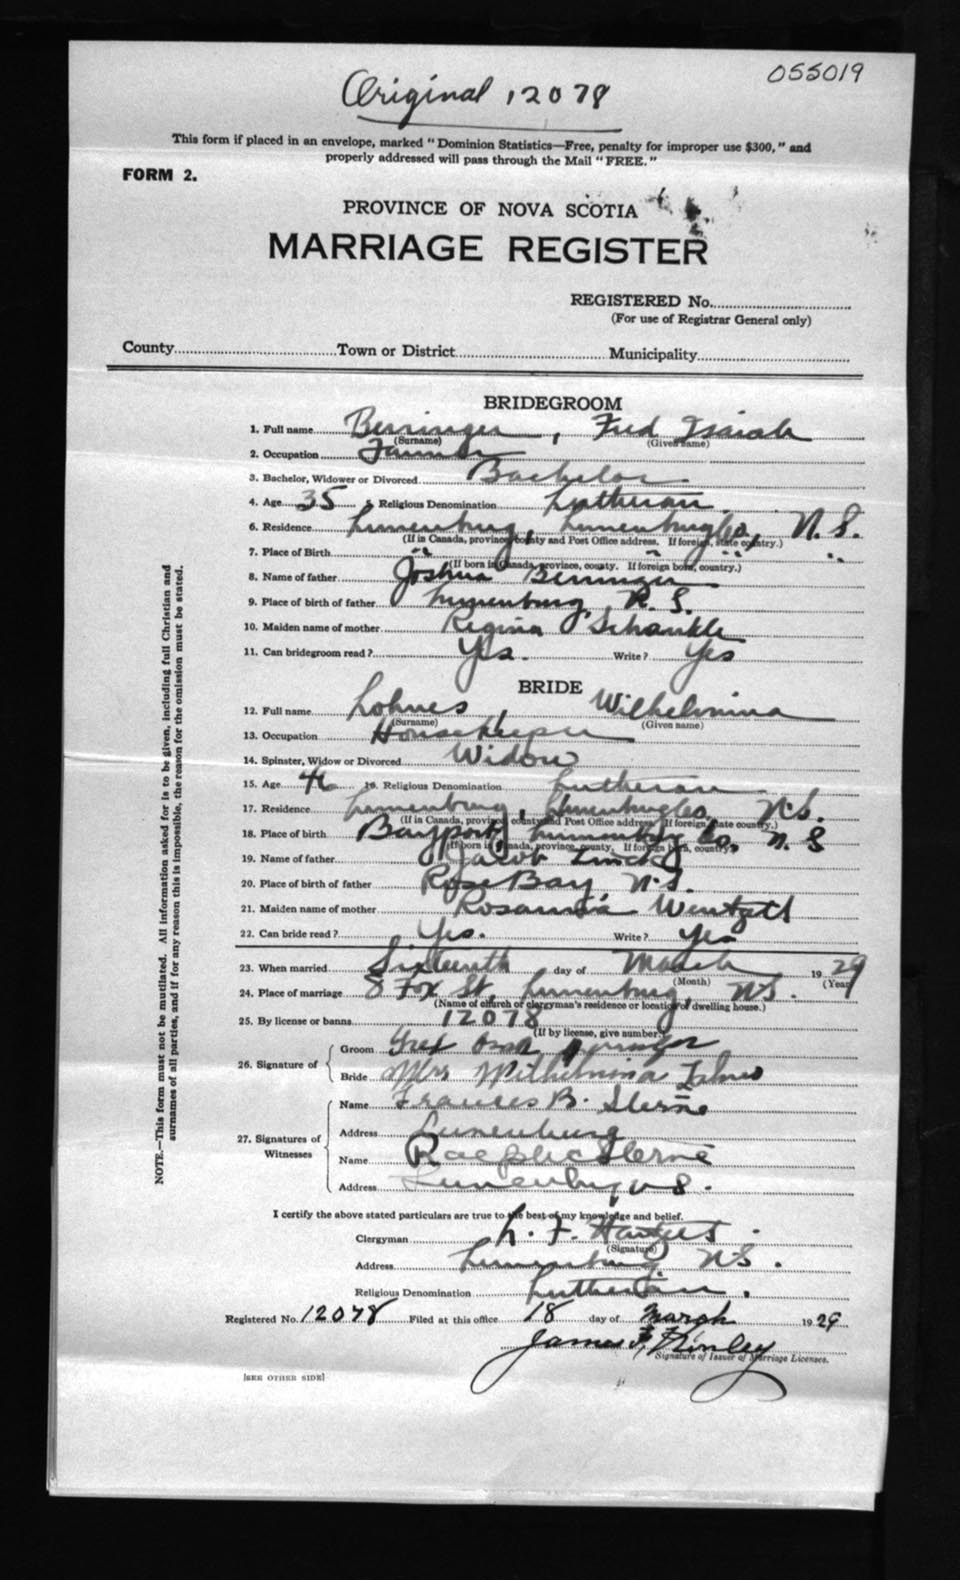 055019
Original 12078
This form if placed in an envelope, marked "Dominion Statistics—Free, penalty for improper use $300," and
properly addressed will pass through the Mail "FREE."
FORM 2.
PROVINCE OF NOVA SCOTIA
MARRIAGE REGISTER
REGISTERED No.
(For use of Registrar General only)
County Town or District Municipality
BRIDEGROOM
1. Full name Berringer, Fred Isaiah
(Surname) (Given name)
2. Occupation Farmer
3. Bachelor, Widower or Divorced Bachelor
4. Age 35 5. Religious Denomination Lutheran
6. Residence Lunenburg, Lunenburg Co, N.S.
(If in Canada, province, county and Post Office address. If foreign, state country.)
7. Place of Birth " " "
(If born in Canada, province, county. If foreign born, country.)
8. Name of father Joshua Berringer
9. Place of birth of father Lunenburg, N.S.
10. Maiden name of mother Regina Schankle
11. Can bridegroom read? Yes. Write? Yes
BRIDE
12. Full name Lohnes, Wilhelmina
(Surname) (Given name)
13. Occupation Housekeeper
14. Spinster, Widow or Divorced Widow
15. Age 46 16. Religious Denomination Lutheran
17. Residence Lunenburg, Lunenburg Co. N.S.
(If in Canada, province, county and Post Office address. If foreign, state country.)
18. Place of birth Bayport, Lunenburg Co, N.S
(If born in Canada, province, county. If foreign born, country.)
19. Name of father Jacob Zinck
20. Place of birth of father Rose Bay, N.S.
21. Maiden name of mother Rosanna Wentzell
22. Can bride read? Yes. Write? Yes
23. When married Sixteenth day of March 1929
(Month) (Year)
24. Place of marriage 8 Fox St, Lunenburg, N.S.
(Name of church or clergyman's residence or location of dwelling house.)
25. By license or banns 12078
(If by license, give number.)
26. Signature of
Groom
Bride Mrs Wilhelmina
27. Signatures of
Witnesses
Name Frances B.
Address Lunenburg
Name
Address Lunenburg N S.
I certify the above stated particulars are true to the best of my knowledge and belief.
Clergyman
(Signature)
Address Lunenburg, N.S.
Religious Denomination Lutheran.
Registered No. 12078 Filed at this office 18 day of March 1929
James F. Kinley
Signature of Issuer of Marriage Licenses.
[SEE OTHER SIDE]
NOTE.—This form must not be mutilated. All information asked for is to be given, including full Christian and
surnames of all parties, and if for any reason this is impossible, the reason for the omission must be stated.